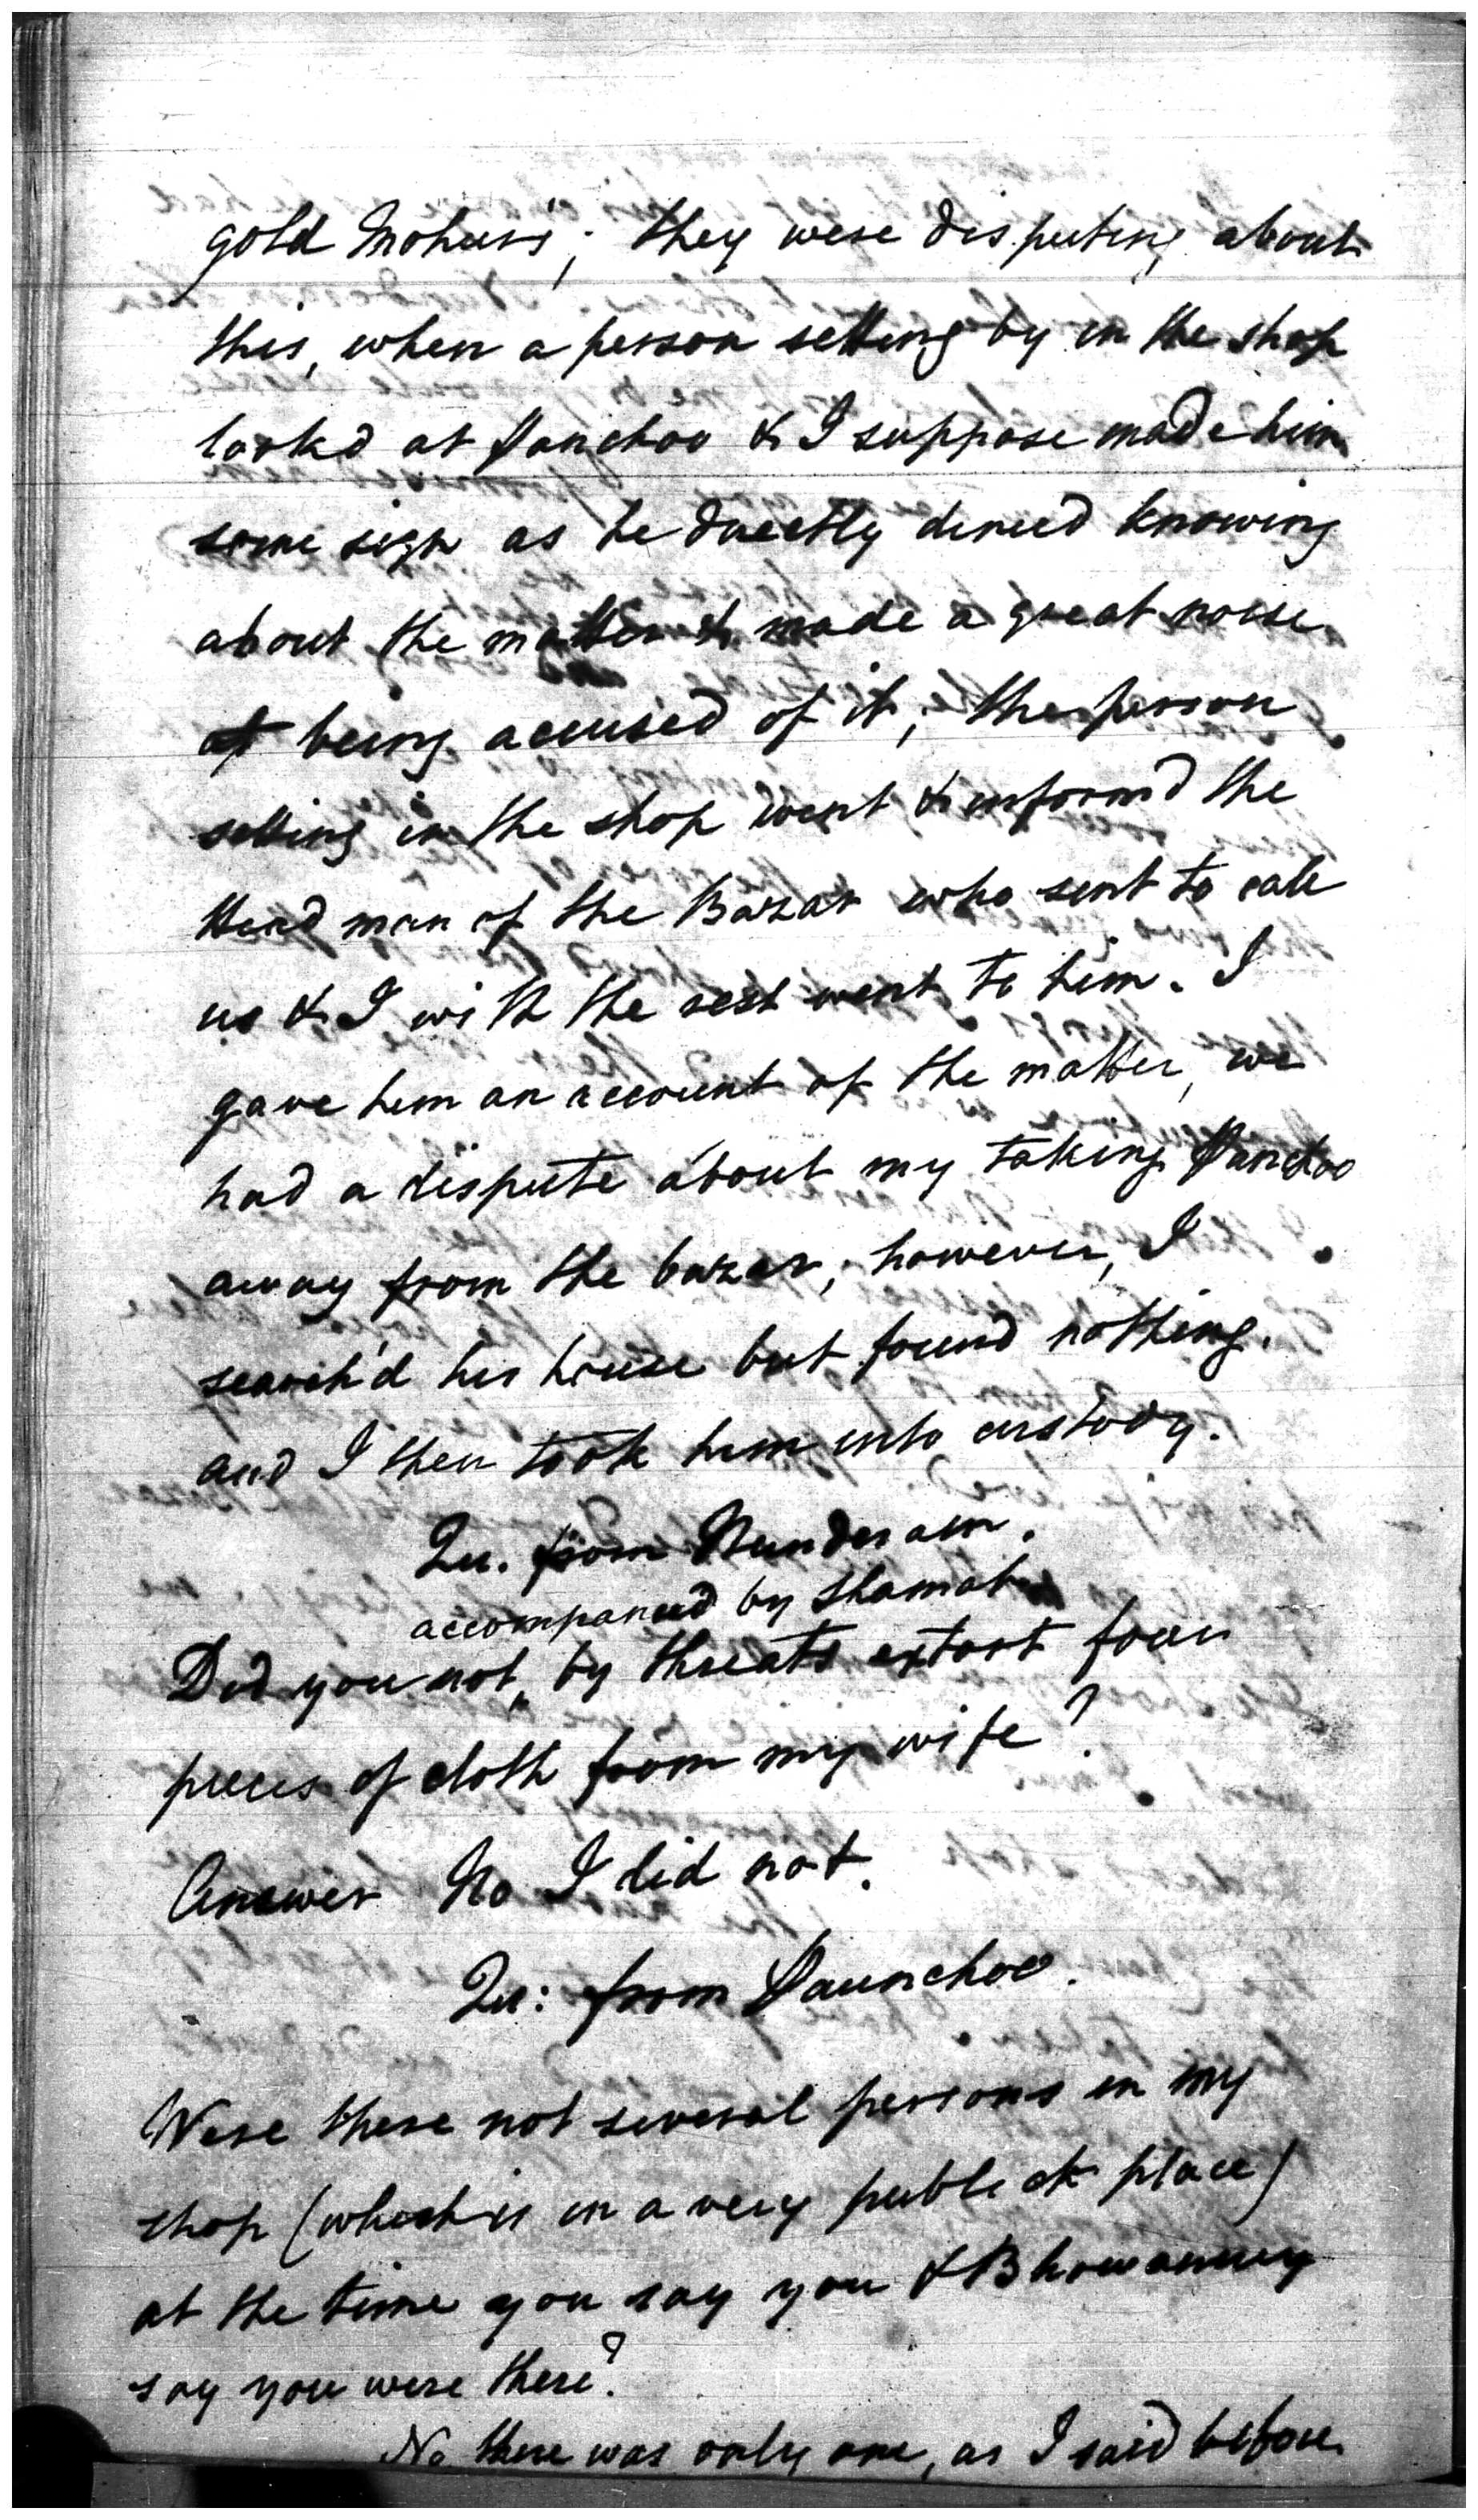 gold Mohur's; they were disputing about
this, when a person setting by in the shop
look'd at Panchoo & I suppose made him
some sign as he directly denied knowing
about the matter & made a great noise
at being accused of it; the person
setting in the shop went & inform'd the
Head man of the Bazar who sent to call
us & I with the rest went to him. I
gave him an account of the matter, we
had a dispute about my taking Panchoo
away from the bazar; however, I
search'd his house but found nothing.
and I then took him into custody.
Qu. from Nunderam.
accompanied by Shamah
Did you not, by threats extort four
pieces of cloth from my wife?
Answer No I did not.
Qu: from Paunchoo.
Were there not several persons in my
shop (which is in a very publick place)
at the time you say you & Bhowanney
say you were there?
No there was only one, as I said before